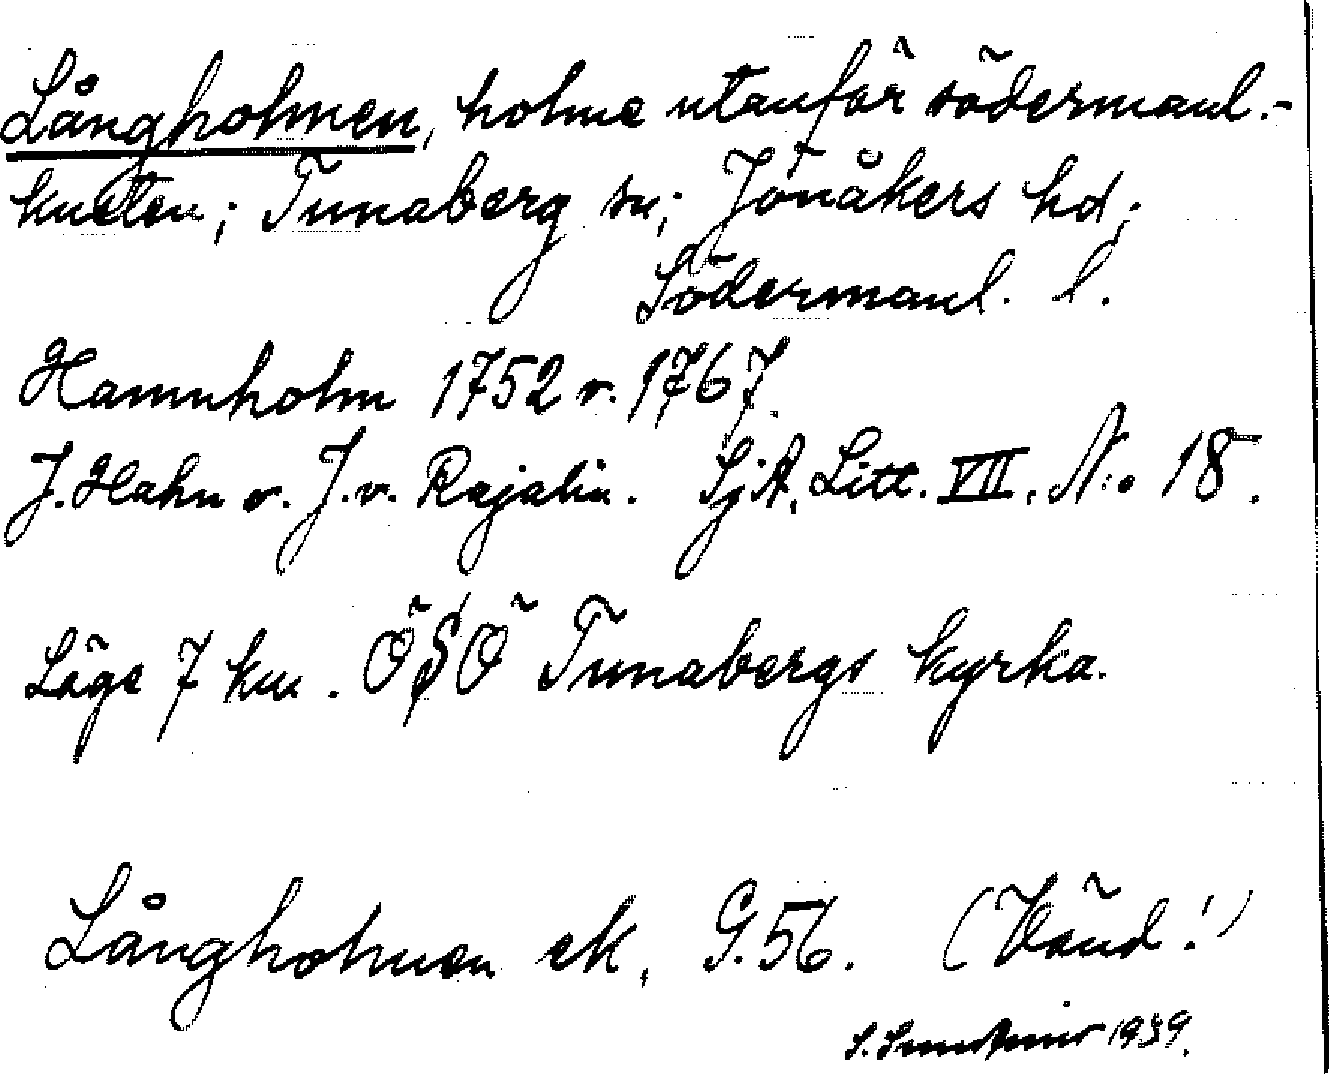 Långholmen, holme utanför södermanl.-
kusten; Tunaberg sn; Jönåkers hd;
Södermanl. l.
Hamnholm 1752 o. 1767.
J. Hahn o. J. v. Rajalin. SjA, Litt. VII. No 18.
Läge 7 km. ÖSÖ Tunabergs kyrka.
Långholmen ek, G. 56. (Vänd!)
S. 1939.